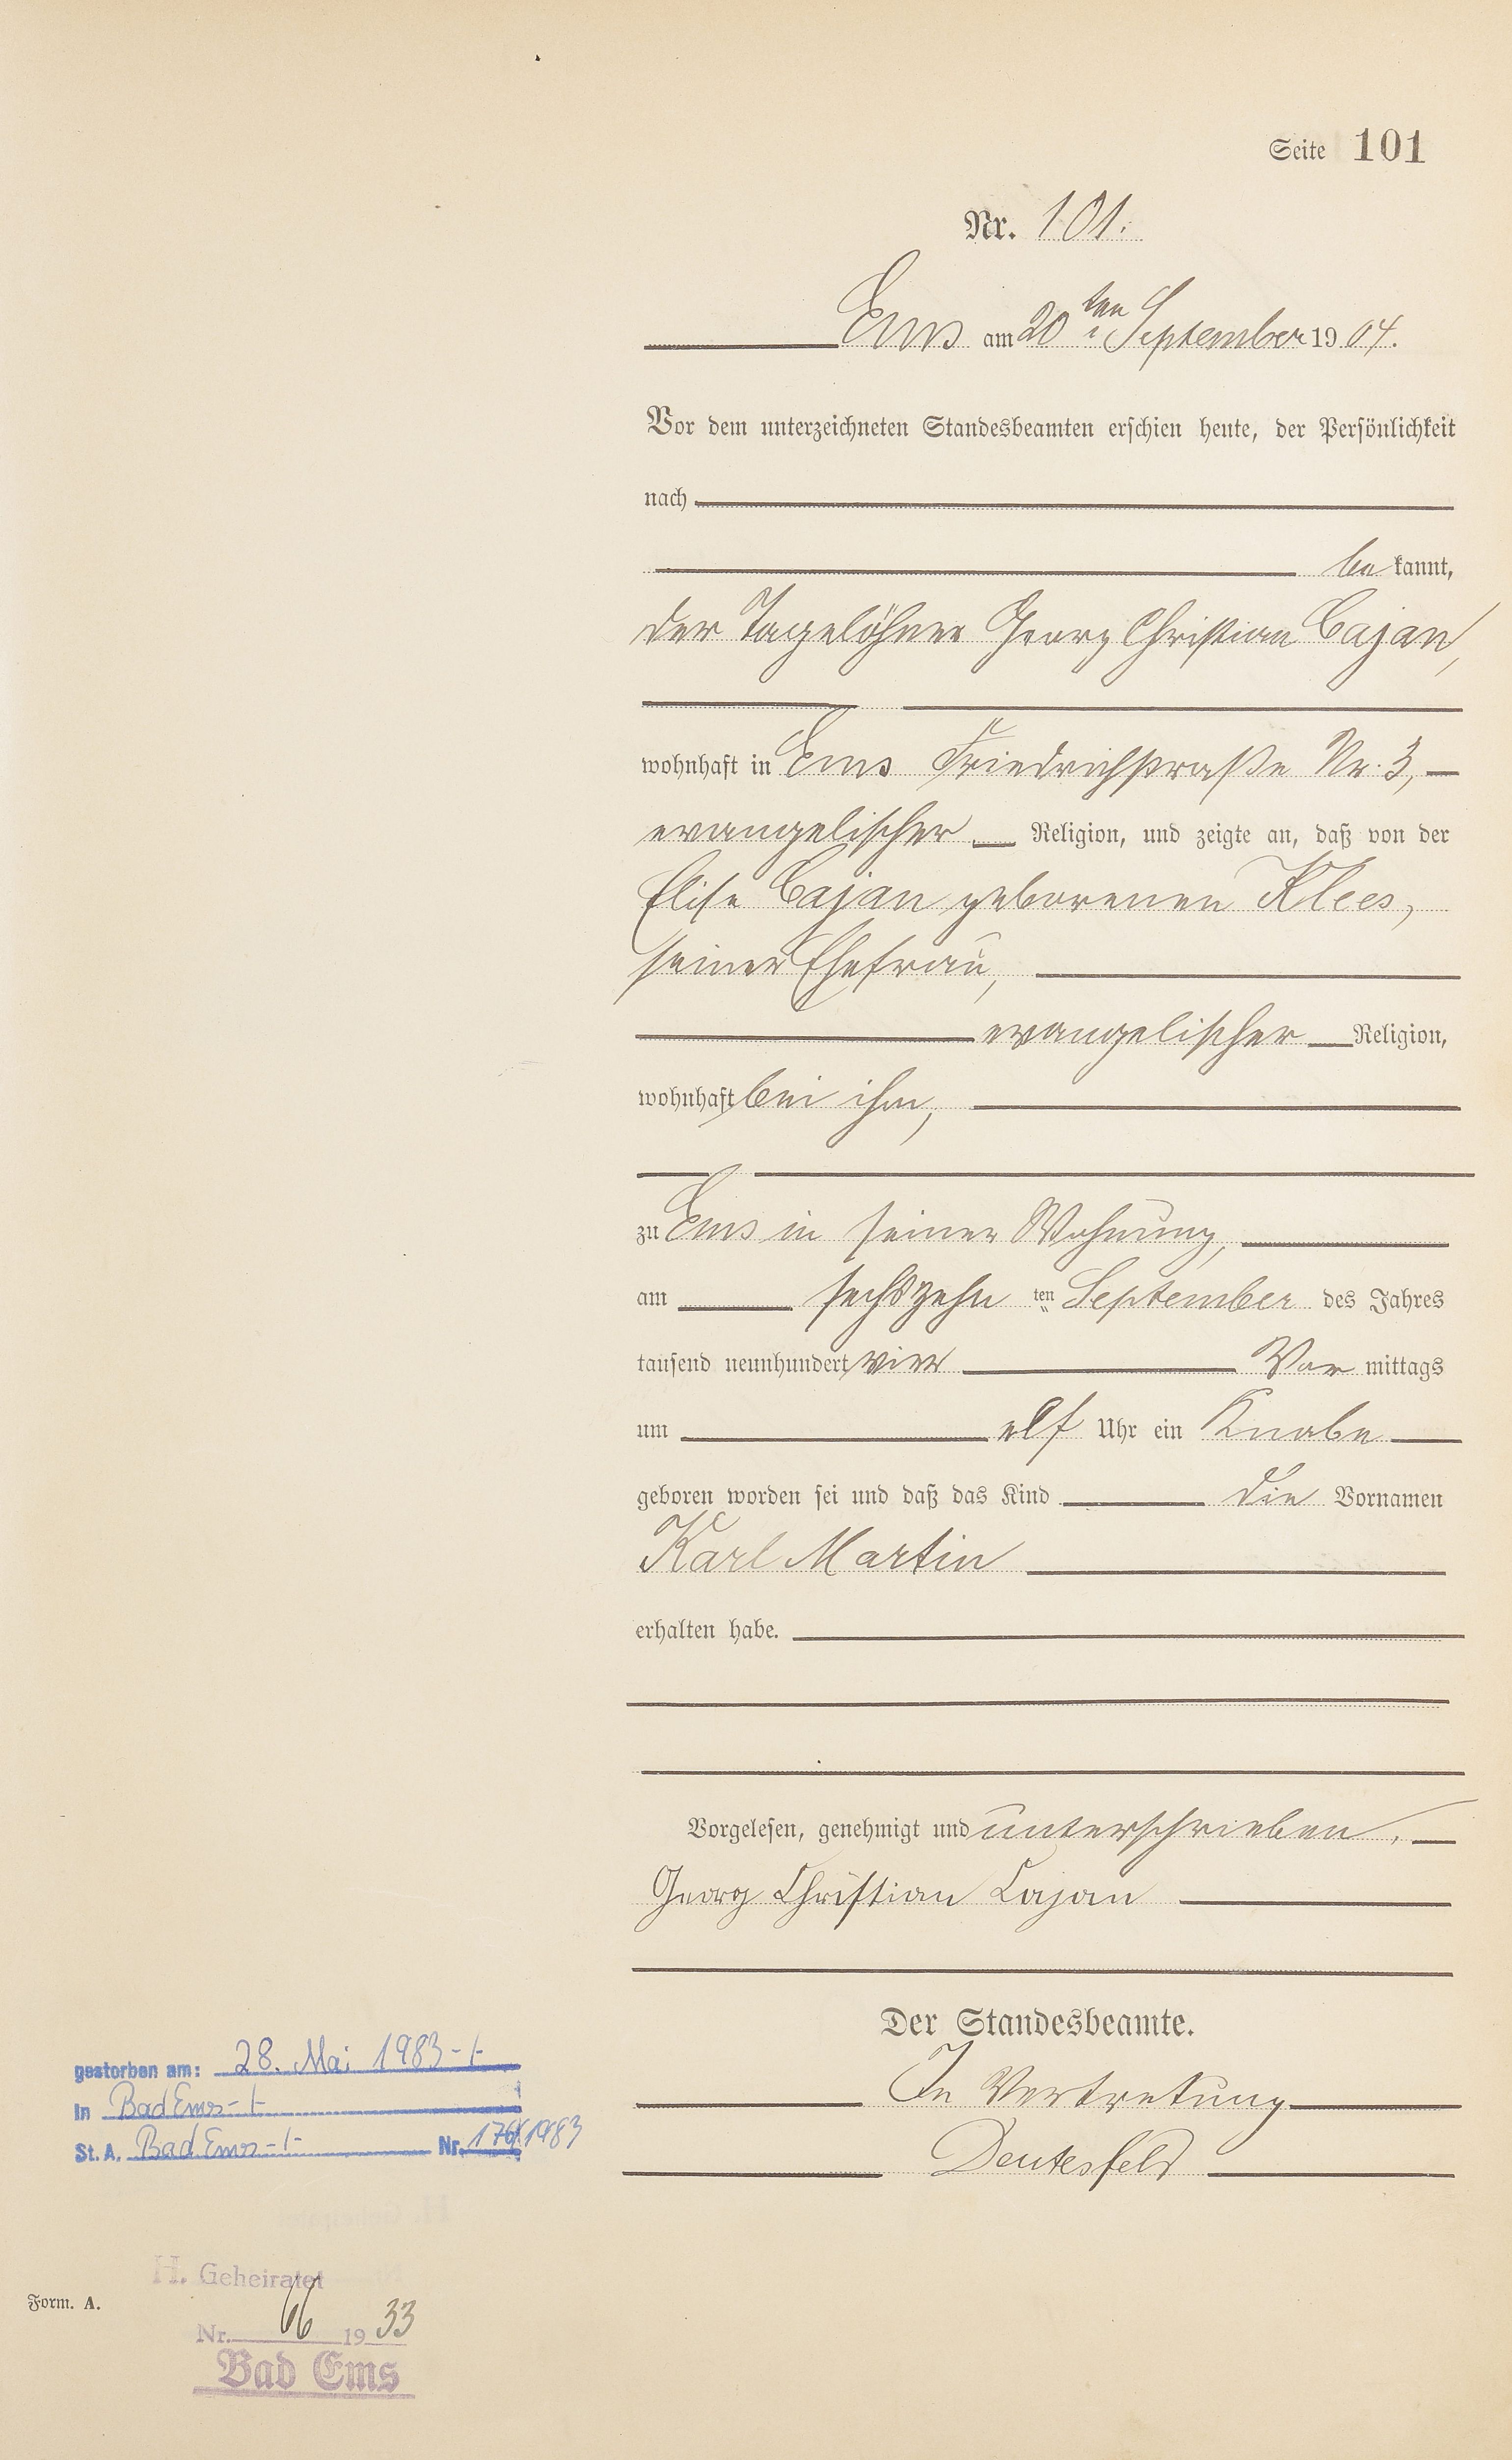 Seite 101
Nr. 101.
Ems am 20ten September 1904.
Vor dem unterzeichneten Standesbeamten erschien heute, der Persönlichkeit
nach
bekannt,
der Tagelöhner Georg Christian Cajan,
wohnhaft in Ems Friedrichstraße Nr. 3,
evangelischer Religion, und zeigte an, daß von der
Elise Cajan geborenen Klees,
seiner Ehefrau,
evangelischer Religion,
wohnhaft bei ihm,
zu Ems in seiner Wohnung,
am sechszehn ten September des Jahres
tausend neunhundert vier Vor mittags
um elf Uhr ein Knabe
geboren worden sei und daß das Kind die Vornamen
Karl Martin
erhalten habe.
Vorgelesen, genehmigt und unterschrieben.
Georg Christian Cajan
Der Standesbeamte.
In Vertretung
Deutesfeld
gestorben am: 28. Mai 1983 -/-
in Bad Ems -/-
St. A. Bad Ems -/- Nr. /1983
H. Geheiratet
Nr. 66 1933
Bad Ems
Form. A.